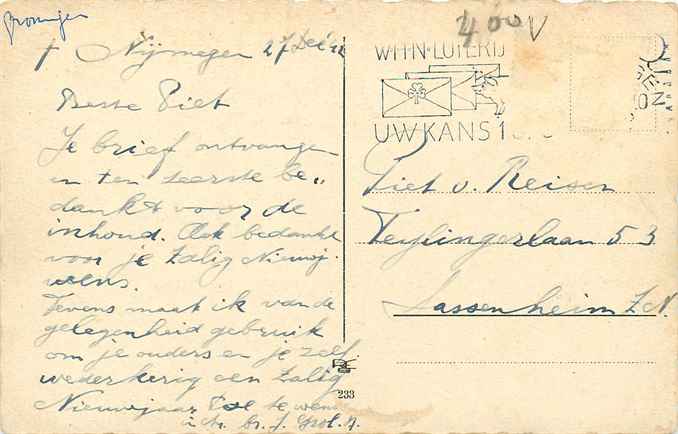 Groningen
Nijmegen 27 Dec
Beste Piet
Je brief ontvangen
en ten zeerste be„
dankt voor de
inhoud. Ook bedankt
voor je Zalig Nieuwj.
wens.
Tevens maak ik van de
gelegenheid gebruik
om je ouders en je zelf
wederkerig een Zalig
Nieuwjaar toe te wens
in
400
W·H·N·LOTERIJ
UW KANS 1
Piet v. Reisen
Teylingerlaan 53
Sassenheim Z.H.
233